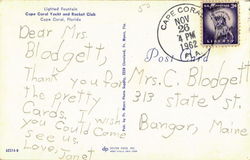 Lighted Fountain
Cape Coral Yacht and Racket Club
Cape Coral, Florida
Dear Mrs.
Blodgett,
Thank you for
the pretty
Cards. I wish
you could come
see us.
Love, Janet
Post Card
CAPE CORAL
NOV
26
PM
1962
FLA.
LIBERTY
Mrs. C. Blodgett
313 State St.
Bangor, Maine